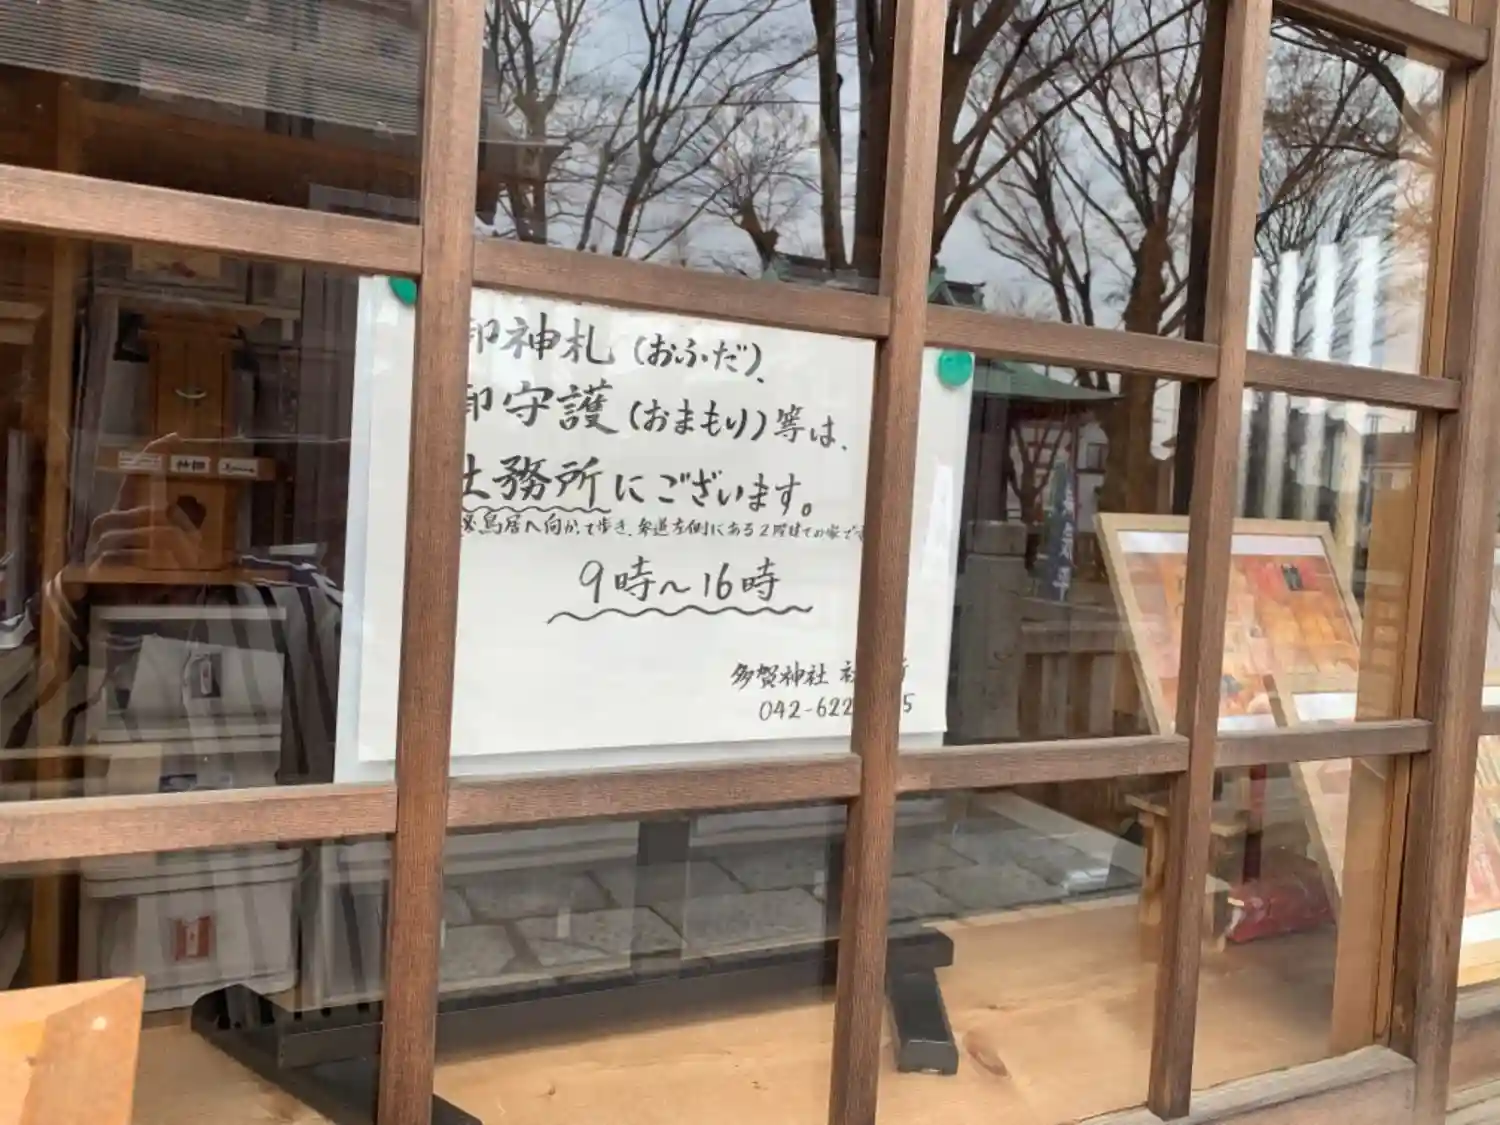 御神札（おふだ）、
御守護（おまもり）等は、
社務所にございます。
鳥居へ向かって歩き、参道左側にある2階建ての家です
9時～16時
多賀神社 社務所
042-622 5
神棚